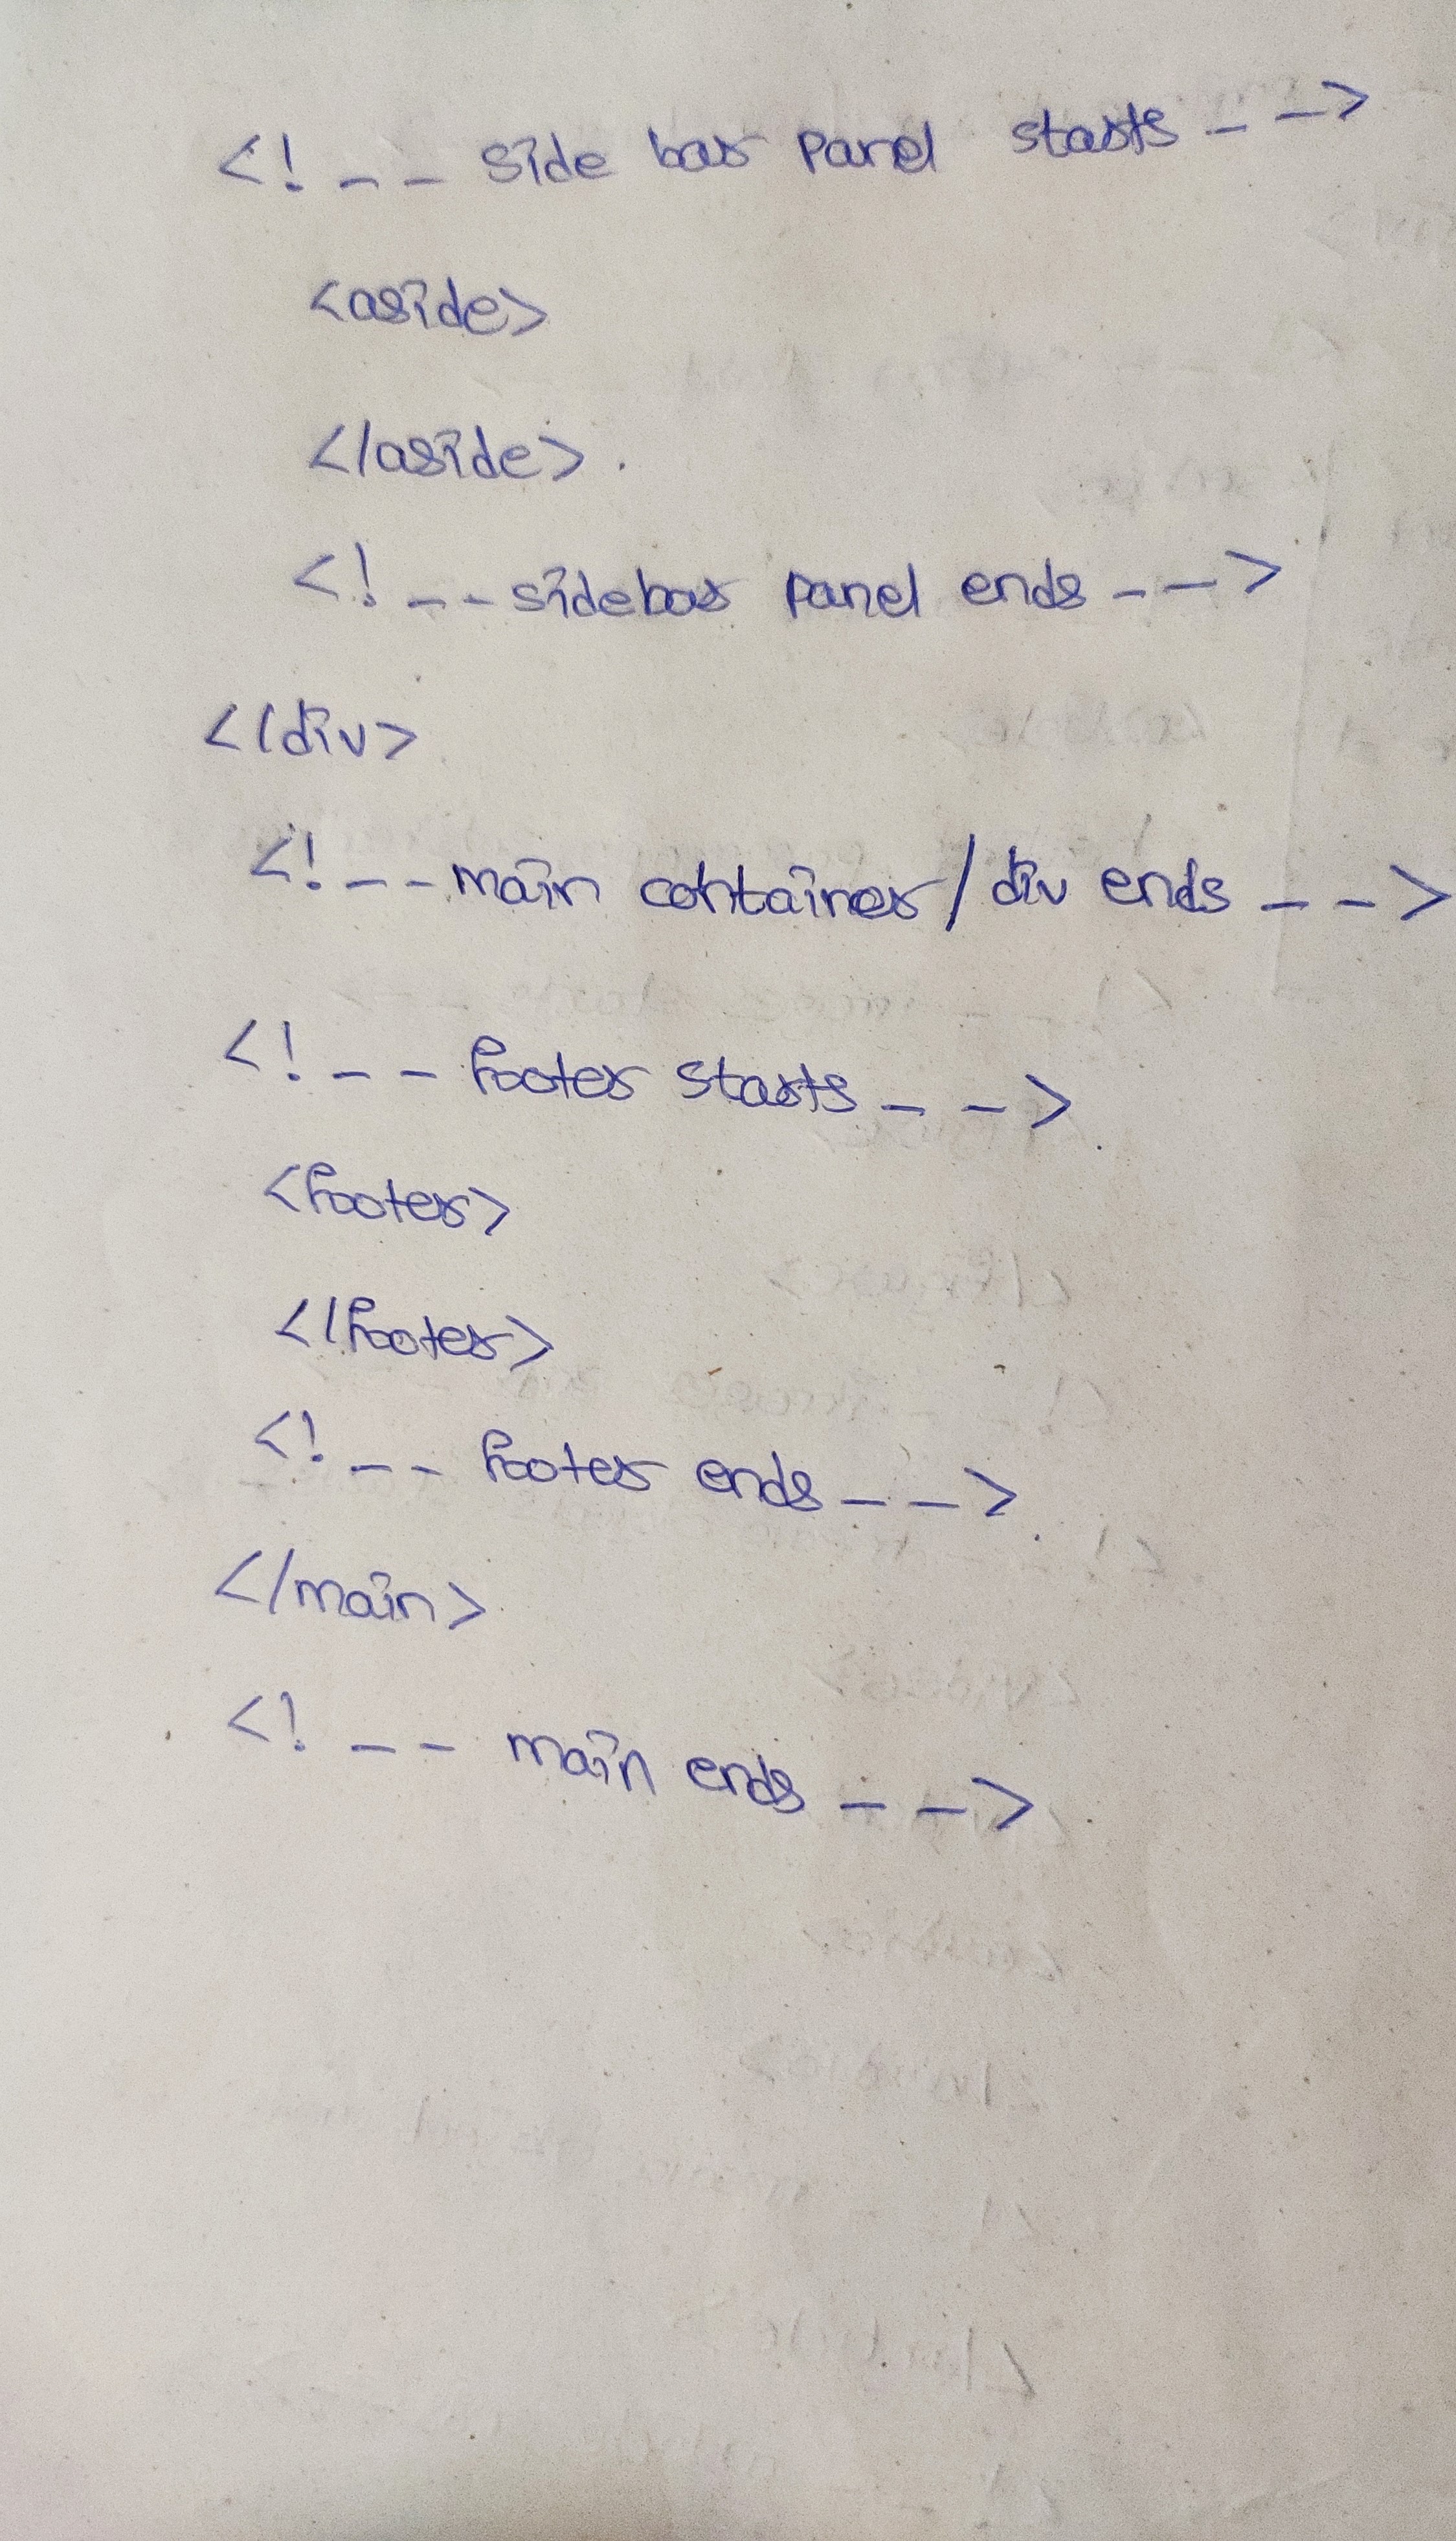 <!-- side bar panel starts -->
<aside>
</aside>
<!-- sidebar panel ends -->
</div>
<!-- main container/div ends -->
<!-- footer starts -->
<footer>
</footer>
<!-- footer ends -->
</main>
<!-- main ends -->